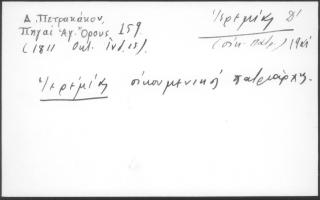 Δ. Πετρακάκου,
Πηγαὶ Ἁγ. Ὄρους 159
(1811 Ὀκτ. Ἰνδ. 15)
Ἱερεμίας Δ'
(οἰκ. πατρ.)
Ἱερεμίας οἰκουμενικὸς πατριάρχης.